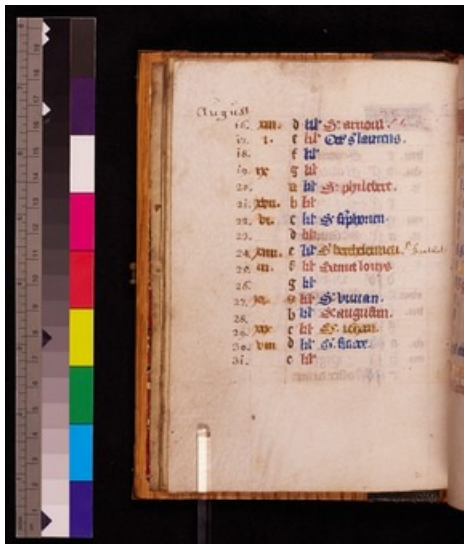 August
16. xiii. d kl' S. arnoul.
17. i. e kl' Oct' s' laurens.
18. f kl'
19. ix g kl'
20. a kl' S. philebert.
21. xvii. b kl'
22. vi. c kl' S.
23. d kl'
24. xiiii. e kl' S. bertholemieu.
25. iii. f kl' Saint louys
26. g kl'
27. xi. a kl'
28. b kl' S. augustin.
29. xix c kl' S. iehan.
30. viii d kl' S. fiacre.
31. e kl'